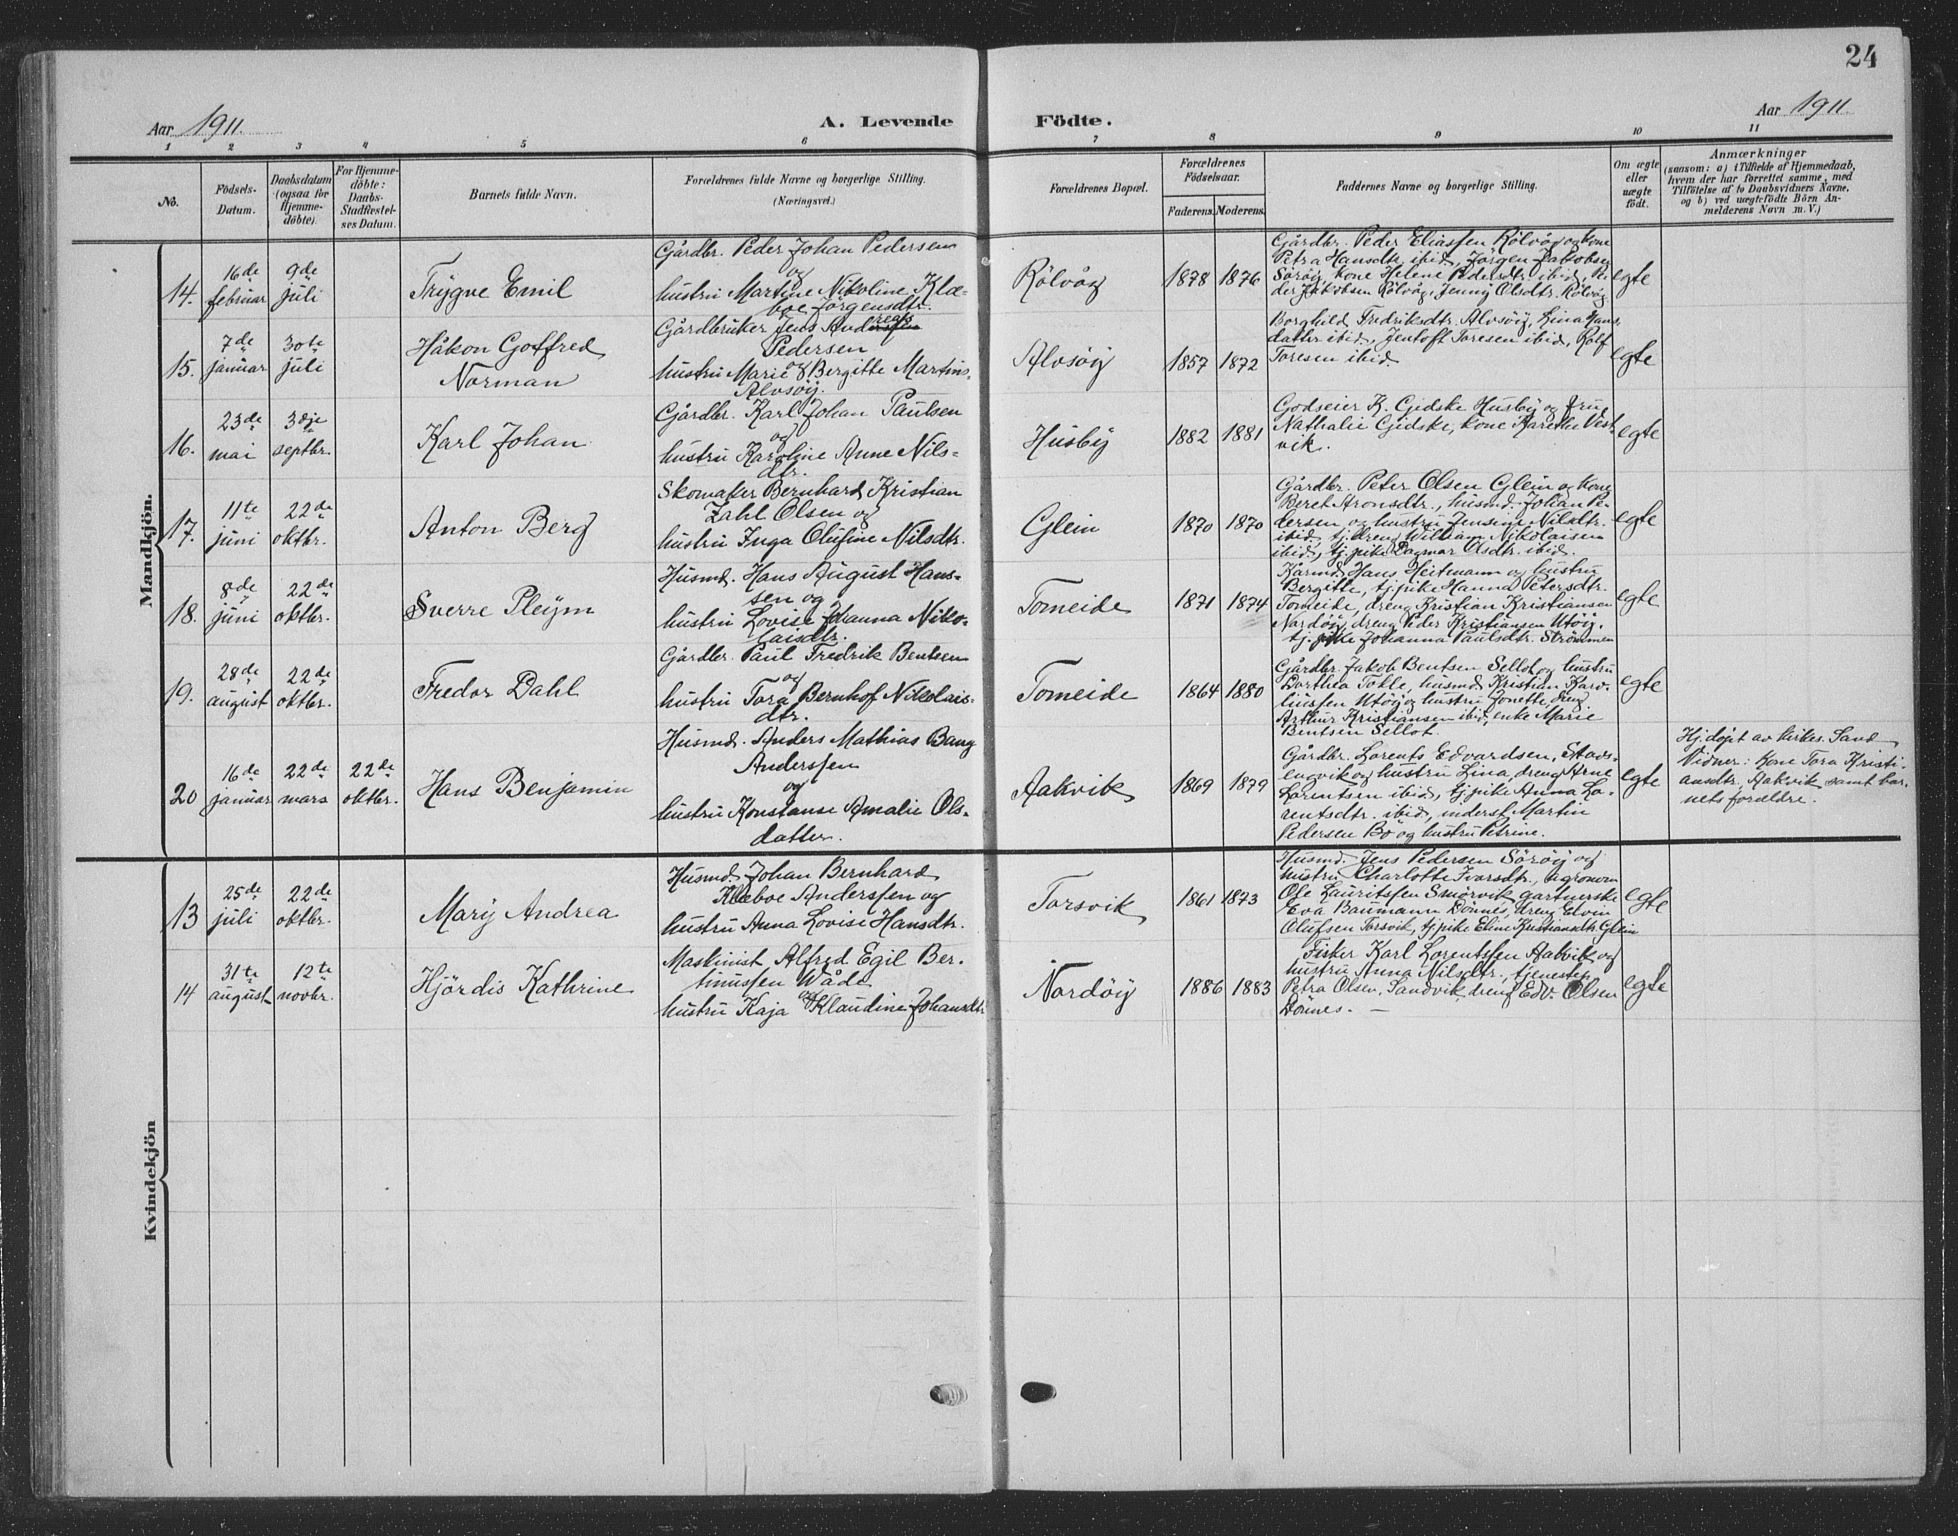 24
Aar 1911.
A. Levende
Födte.
Aar 1911.
1 2 3 4 5 6 7 8 9 10 11
No.
Födsels-
Datum.
Daabsdatum
(ogsaa for
Hjemme-
döbte).
For Hjemme-
döbte:
Daabs-
Stadfæstel-
ses Datum.
Barnets fulde Navn.
Forældrenes fulde Navne og borgerlige Stilling.
(Næringsvei.)
Forældrenes Bopæl.
Forældrenes
Födselsaar.
Faderens. Moderens.
Faddernes Navne og borgerlige Stilling.
Om ægte
eller
uægte
födt.
Anmærkninger
(saasom: a) i Tilfælde af Hjemmedaab,
hvem der har forrettet samme, med
Tilföielse af to Daabsvidners Navne,
og b) ved uægtefödte Börn An-
melderens Navn m. V.)
Mandkjön.
14.
16de
februar
9de
juli
Trygve Emil
Gårdbr. Peder Johan Pedersen
og
hustru Martine Nikoline Klæ-
boe Jörgensdtr.
Rölvåg
1878 1876
Gårdbr. Peder Eliassen Rölvåg og kone
Petra Hansdtr. ibid, Jörgen Jakobsen
Söröy, kone Helene Pedersdtr ibid, Pe-
der Jakobsen Rölvåg, Jenny Olsdtr. Rölvåg
egte
15.
7de
januar
30te
juli
Håkon Goffred
Norman
Gårdbruker Jens Anderssen
Pedersen
og
hustru Marie Bergitte Martins-
Alvsöy.
Alvsöy
1857 1872
Borghild Fredriksdtr. Alvsöy, Lina Hans-
datter ibid, Jentoft Toresen ibid, Rolf
Toresen ibid.
egte
16.
23de
mai
3dje
septbr.
Karl Johan
Gårdbr. Karl Johan Paulsen
og
hustru Karoline Anne Nils-
dtr.
Husby
1882 1881
Godseier K. Gidske Husby og frue
Nathalie Gidske, kone Karethe Vest
vik.
egte
17.
11te
juni
22de
oktbr.
Anton Berg
Skomaker Bernhard Kristian
Zahl Olsen og
hustru Inga Olufine Nilsdtr.
Glein
1870 1870
Gårdbr. Peter Olsen Glein og kone
Beret Aronsdtr., husmd. Johan Pe-
dersen og hustru Jensine Nilsdtr.
ibid, tj.dreng William Nikolaisen
ibid, tj.pike Dagmar Olsdtr. ibid.
egte
18.
8de
juni
22de
oktbr.
Sverre Pleym
Husmd. Hans August Hans-
sen og
hustru Lovise Johanna Niko-
laisdtr.
Tomeide
1871 1874
Kårmd. Hans Heitmann og hustru
Bergitte, tj.pike Hanna Petersdtr.
Tomeide, dreng Kristian Kristiansen
Nordöy, dreng Peder Kristiansen Utöy,
tj. pike Johanna Paulsdtr. Strömmen
egte
19.
28de
august
22de
oktbr.
Fredor Dahl
Gårdbr. Paul Fredrik Bentsen
og
hustru Tora Bernhof Nikolais-
dtr.
Tomeide
1864 1880
Gårdbr. Jakob Bentsen Sellot og hustru
Dorthea Tokle, husmd. Kristian Karo-
liussen Utöy og hustru Jonette, dreng
Arthur Kristiansen ibid, enke Marie
Bentsen Sellot.
egte
20
16de
januar
22de
mars
22de
oktbr.
Hans Benjamin
Husmd. Anders Mathias Bang
Anderssen
og
hustru Konstanse Amalie Ols-
datter.
Aakvik
1869 1879
Gårdbr. Lorents Edvardsen, Stads-
engvik og hustru Lina, dreng Arne
Lorentsen ibid, tj.pike Anna Lo-
rentsdtr. ibid, inderst Martin
Pedersen Bö og hustru Petrine.
egte
Hj.döpt av kirkes. Sand
Vidner: Kone Tora Kristi-
ansdtr, Aakvik samt bar-
nets foreldre.
Kvindekjön
13
25de
juli
22de
oktbr.
Mary Andrea
Husmd. Johan Bernhard
Klæboe Anderssen og
hustru Anna Lovise Hansdtr.
Torsvik
1861 1873
Husmd. Jens Pedersen Söröy og
hustru Charlotte Ivarsdtr., agronom
Ole Lauritssen Smörvik gartnerske
Eva Baumann Dönnes, dreng Edvin
Olufsen Torsvik, tj.pike Eline Kristiansdtr Glein
egte
14
31te
august
12te
novbr.
Hjördis Kathrine
Maskinist Alfred Egil Ber-
tinussen Wåde
og
hustru Kaja Klaudine Johansdtr
Nordöy
1886 1883
Fisker Karl Lorentssen Aakvik og
hustru Anna Nilsdtr., tjenestep.
Petra Olsen, Sandvik, dreng Edv. Olsen
Dönnes. —
egte